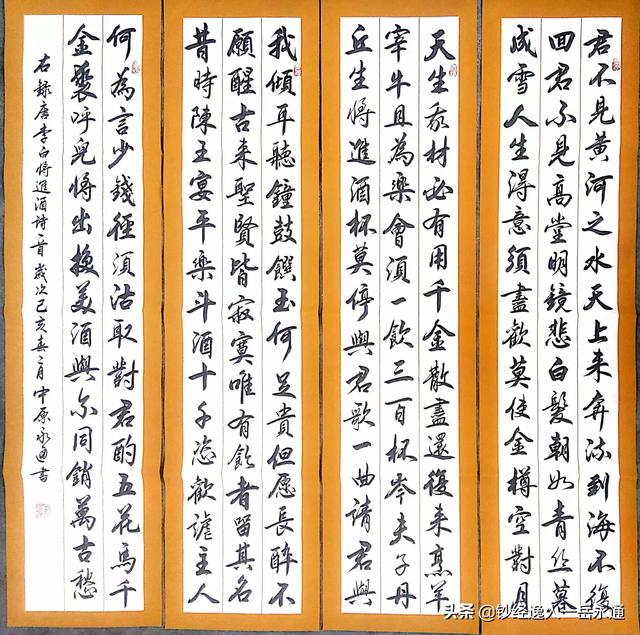 君不見黃河之水天上来奔流到海不復
回君不見高堂明鏡悲白髮朝如青丝暮
成雪人生得意須盡歡莫使金樽空對月
天生我材必有用千金散盡還復来烹羊
宰牛且為樂會須一飲三百杯岑夫子丹
丘生將進酒杯莫停與君歌一曲請君與
我傾耳聽鐘鼓饌玉何足貴但愿長醉不
願醒古来聖賢皆寂寞唯有飲者留其名
昔時陳王宴平樂斗酒十千恣歡謔主人
何為言少錢徑須沽取對君酌五花馬千
金裘呼兒將出換美酒與尔同銷萬古愁
右録唐李白將進酒詩一首歲次己亥春月中原永通書
头条 @钞经逸人一岳永通